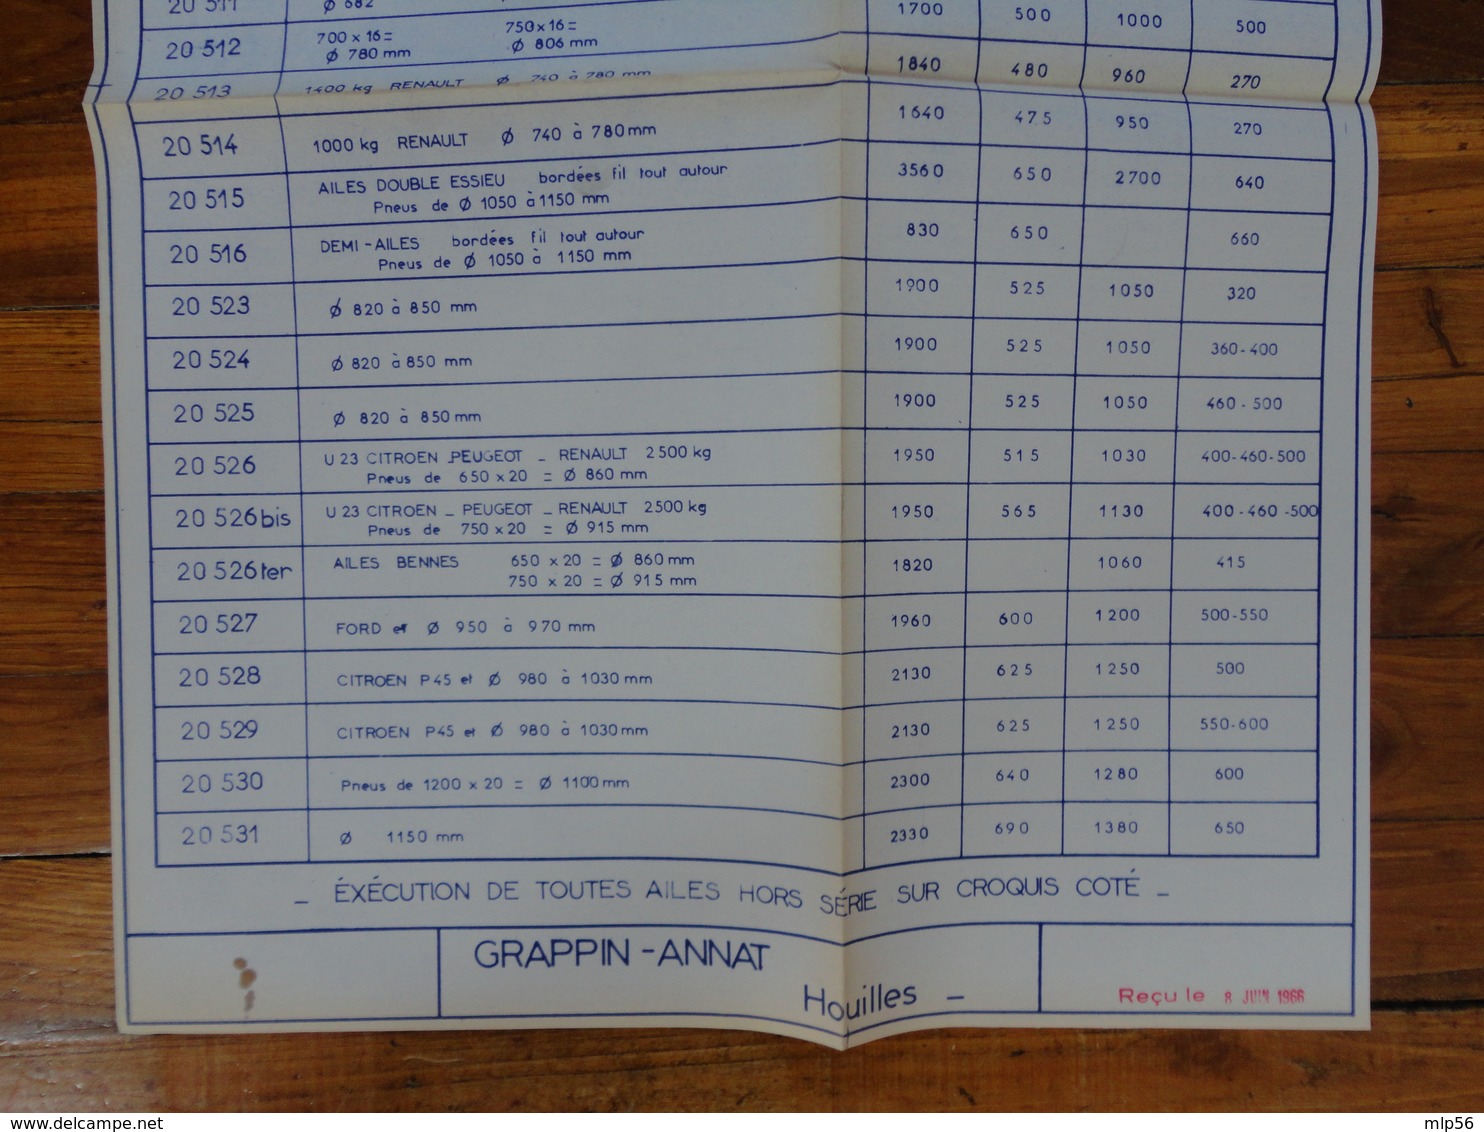 20 511 Ø 682 1700 500 1000 500
20 512 700 x 16 = 750 x 16 =
Ø 780 mm Ø 806 mm
20 513 1400 kg RENAULT Ø 740 à 780 mm 1840 480 960 270
20 514 1000 kg RENAULT Ø 740 à 780 mm 1640 475 950 270
20 515 AILES DOUBLE ESSIEU bordées fil tout autour 3560 650 2700 640
Pneus de Ø 1050 à 1150 mm
20 516 DEMI - AILES bordées fil tout autour 830 650 660
Pneus de Ø 1050 à 1150 mm
20 523 Ø 820 à 850 mm 1900 525 1050 320
20 524 Ø 820 à 850 mm 1900 525 1050 360-400
20 525 Ø 820 à 850 mm 1900 525 1050 460-500
20 526 U 23 CITROEN _PEUGEOT _ RENAULT 2500 kg 1950 515 1030 400-460-500
Pneus de 650 x 20 = Ø 860 mm
20 526 bis U 23 CITROEN _ PEUGEOT _ RENAULT 2500 kg 1950 565 1130 400-460-500
Pneus de 750 x 20 = Ø 915 mm
20 526 ter AILES BENNES 650 x 20 = Ø 860 mm 1820 1060 415
750 x 20 = Ø 915 mm
20 527 FORD et Ø 950 à 970 mm 1960 600 1200 500-550
20 528 CITROEN P45 et Ø 980 à 1030 mm 2130 625 1250 500
20 529 CITROEN P45 et Ø 980 à 1030 mm 2130 625 1250 550-600
20 530 Pneus de 1200 x 20 = Ø 1100 mm 2300 640 1280 600
20 531 Ø 1150 mm 2330 690 1380 650
_ ÉXÉCUTION DE TOUTES AILES HORS SÉRIE SUR CROQUIS COTÉ _
GRAPPIN - ANNAT
Houilles _
Reçu le 8 JUIN 1966
https://www.delcampe.net
mlp56